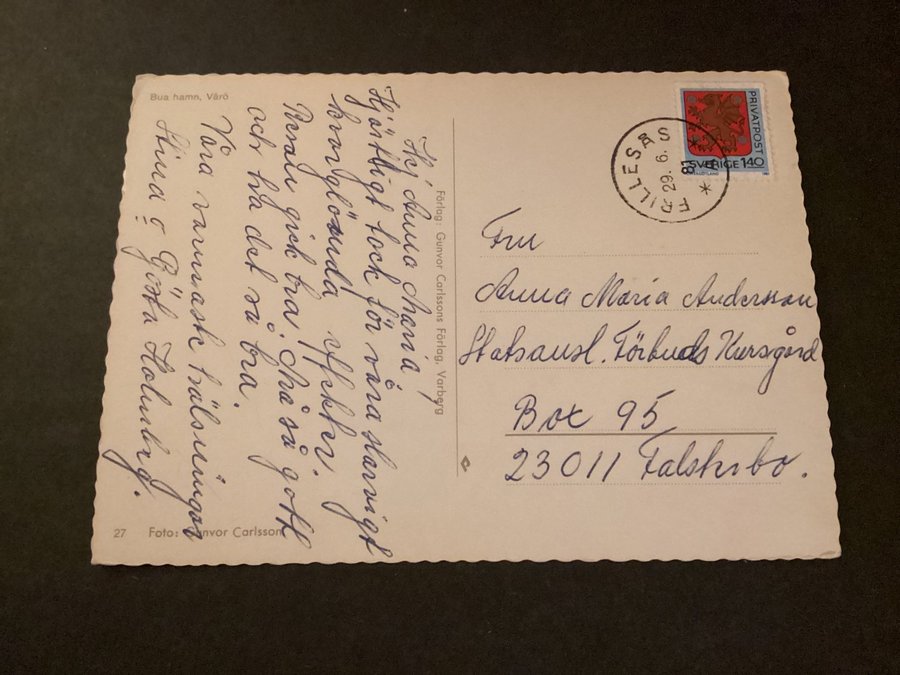 Bua hamn, Värö
Hej Anna Maria!
Hjärtligt tack för våra slarvigt
kvarglömda effekter.
Resan gick bra. Må så gott
och ha det så bra.
Våra varmaste hälsningar
Stina o Gösta Holmberg.
27 Foto: Gunvor Carlsson
Förlag: Gunvor Carlssons Förlag, Varberg
FRILLESÅS
29.6.
81
PRIVATPOST
SVERIGE 140
Fru
Anna Maria Andersson
Statsanst. Förbunds Kursgård
Box 95
23011 Falsterbo.